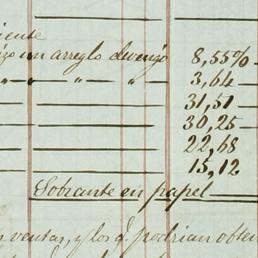 iente
izo un arreglo devengó 8,55%
" " — " — 3,64 —
31,51 —
30,25 —
22,68
15,12
Sobrante en papel
s ventas, y los q. podrian obten